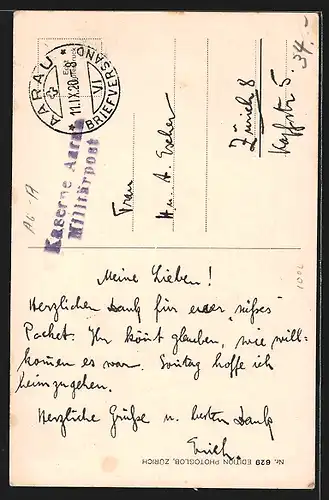 AARAU
11.IX.20 - 8
VI
BRIEFVERSAND
Kaserne Aarau
Militärpost
Frau
H. u. A. Escher
Zürich 8
Kapfstr 5.
34.-
AG-A
1002
Meine Lieben!
Herzlichen Dank für euer „süsses"
Packet. Ihr könnt glauben, wie will-
kommen es war. Sonntag hoffe ich
heimzugehen.
Herzliche Grüße u. besten Dank
Erich.
Nr. 629 EDITION PHOTOGLOB, ZÜRICH